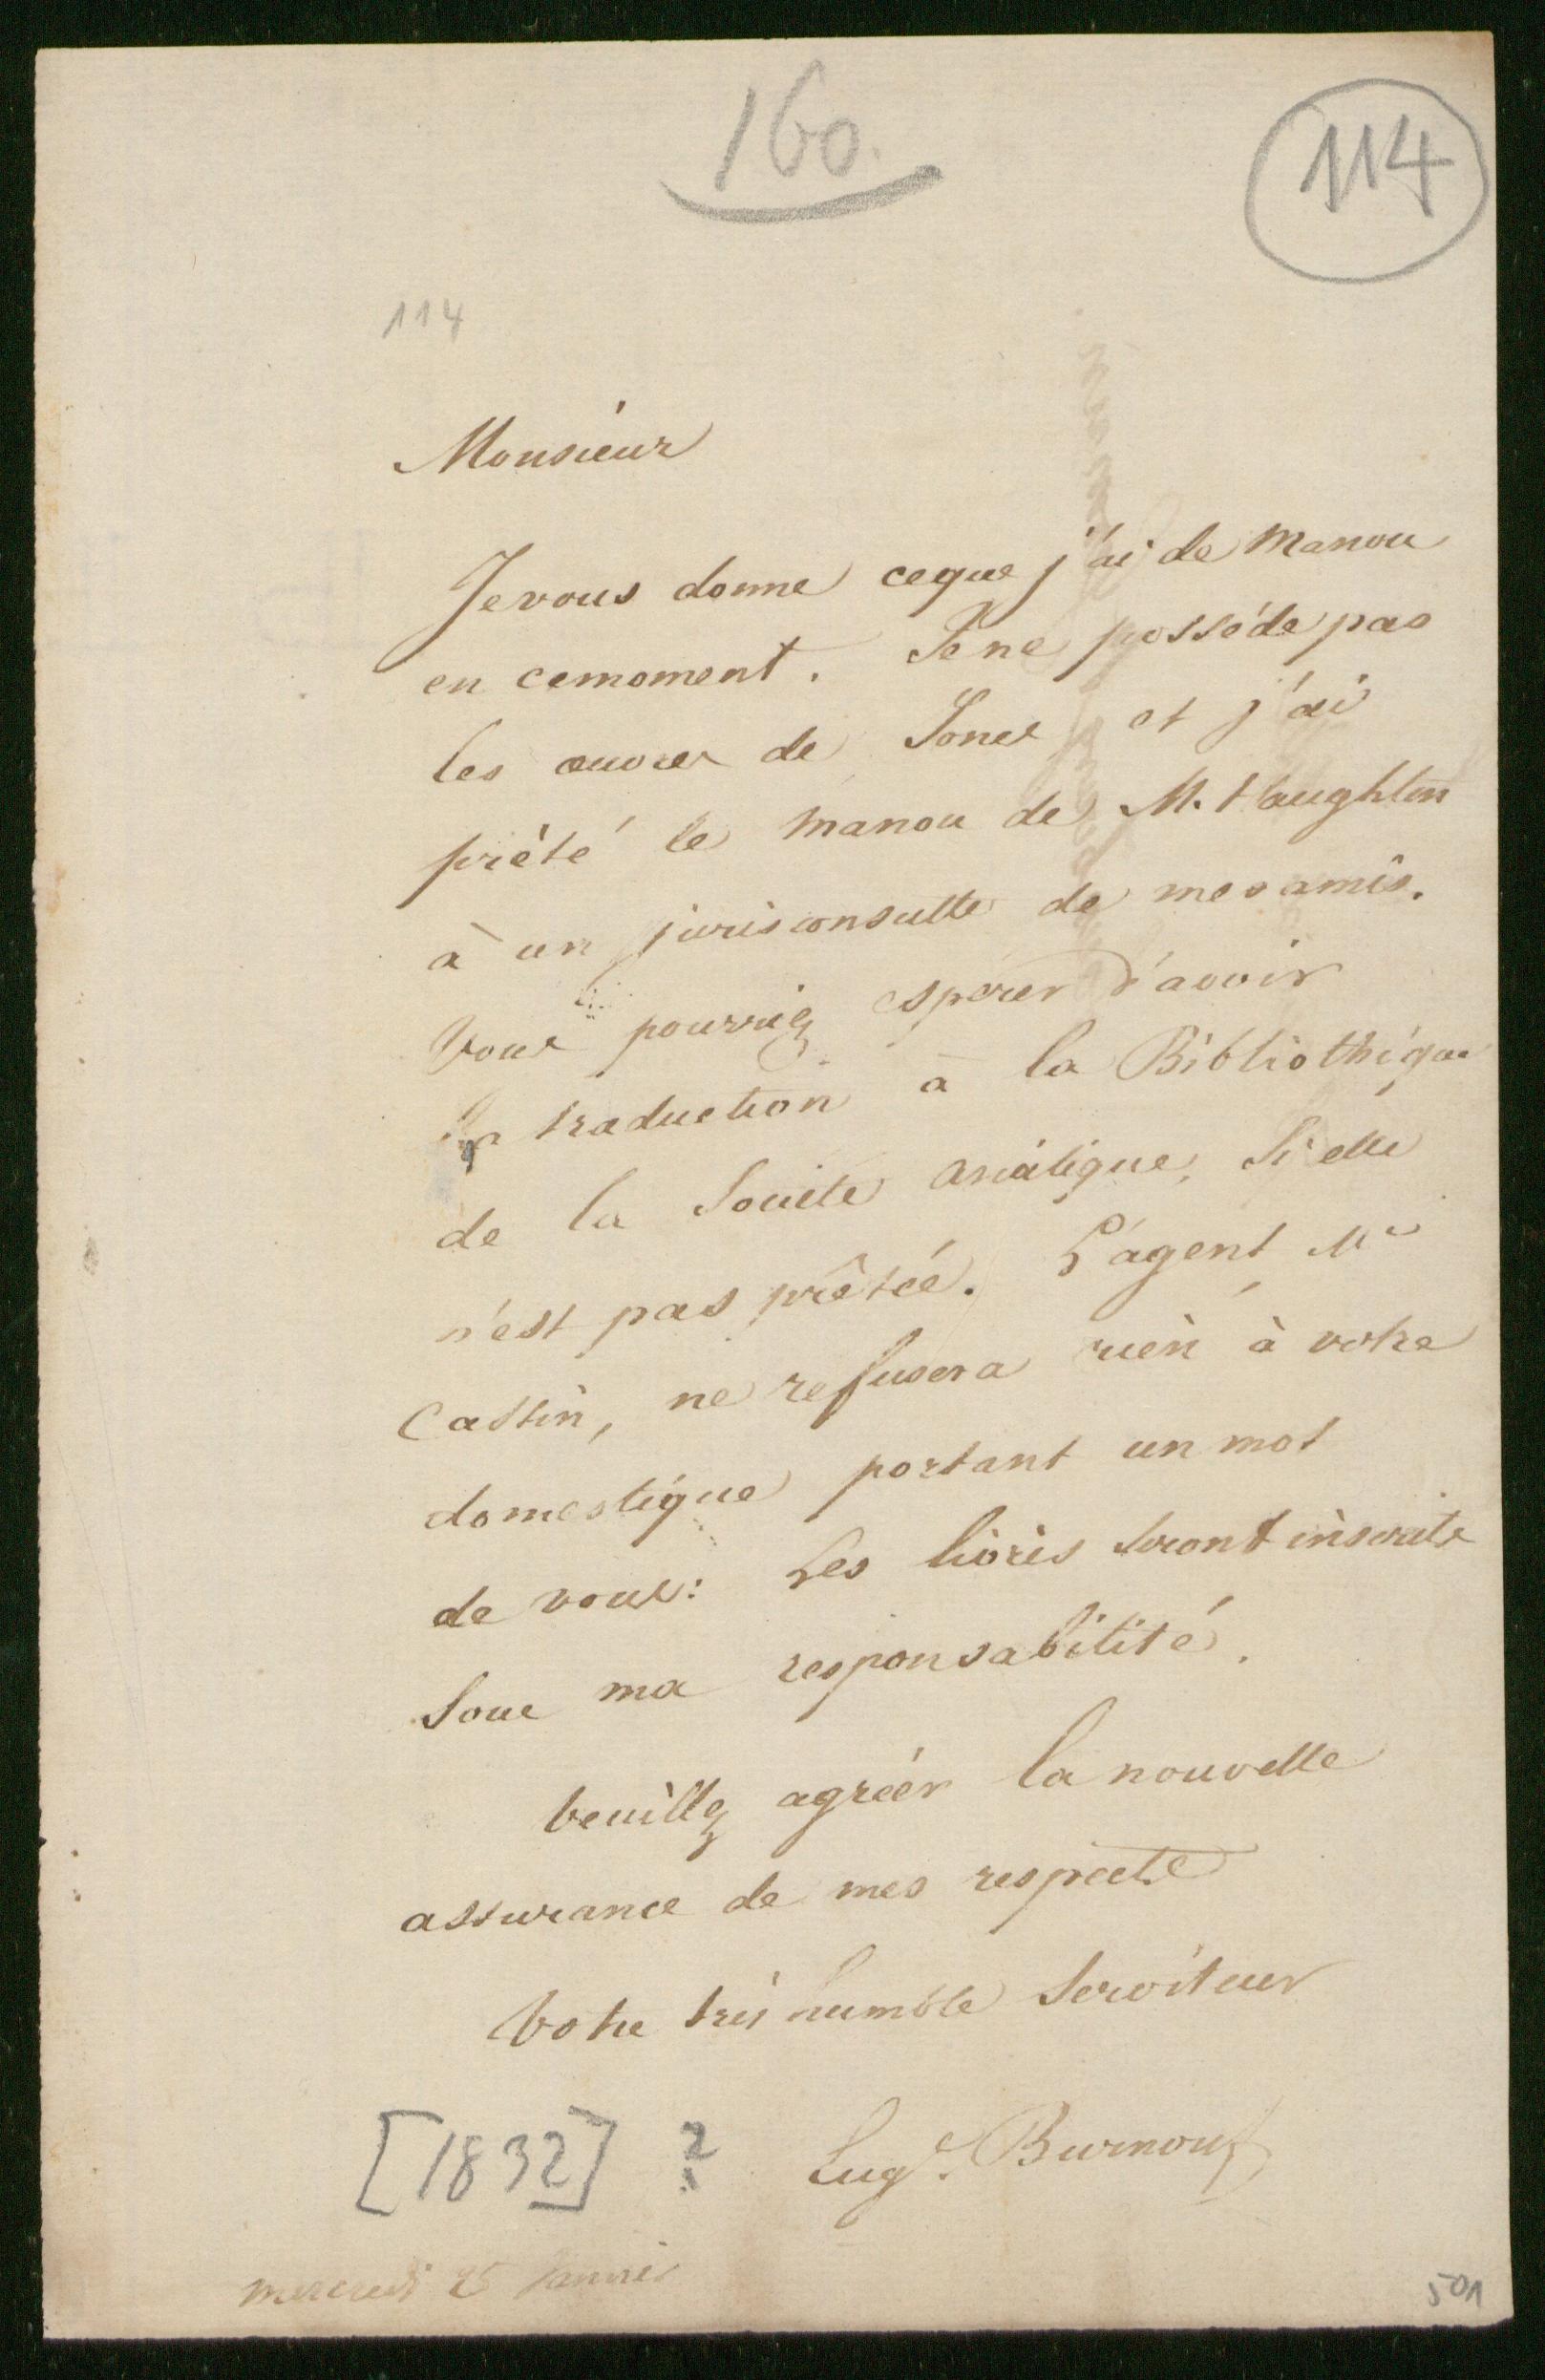 160.
114
114
Monsieur
Je vous donne ce que j'ai de Manou
en ce moment. Je ne possède pas
les œuvres de Jones et j'ai
prêté le Manou de M. Haughton
à un jurisconsulte de mes amis.
Vous pourriez espérer d'avoir
la traduction à la Bibliothèque
de la Société asiatique, si elle
n'est pas prêtée. L'agent Mr
Cassin, ne refusera rien à votre
domestique portant un mot
de vous: Les livres seront inscrits
sous ma responsabilité.
Veuillez agréer la nouvelle
assurance de mes respects
Votre très humble serviteur
[1832] ? Eug. Burnouf
mercredi 25 Janvier
501